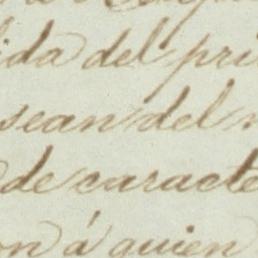 ida del pri
sean del
de caracte
on á quien